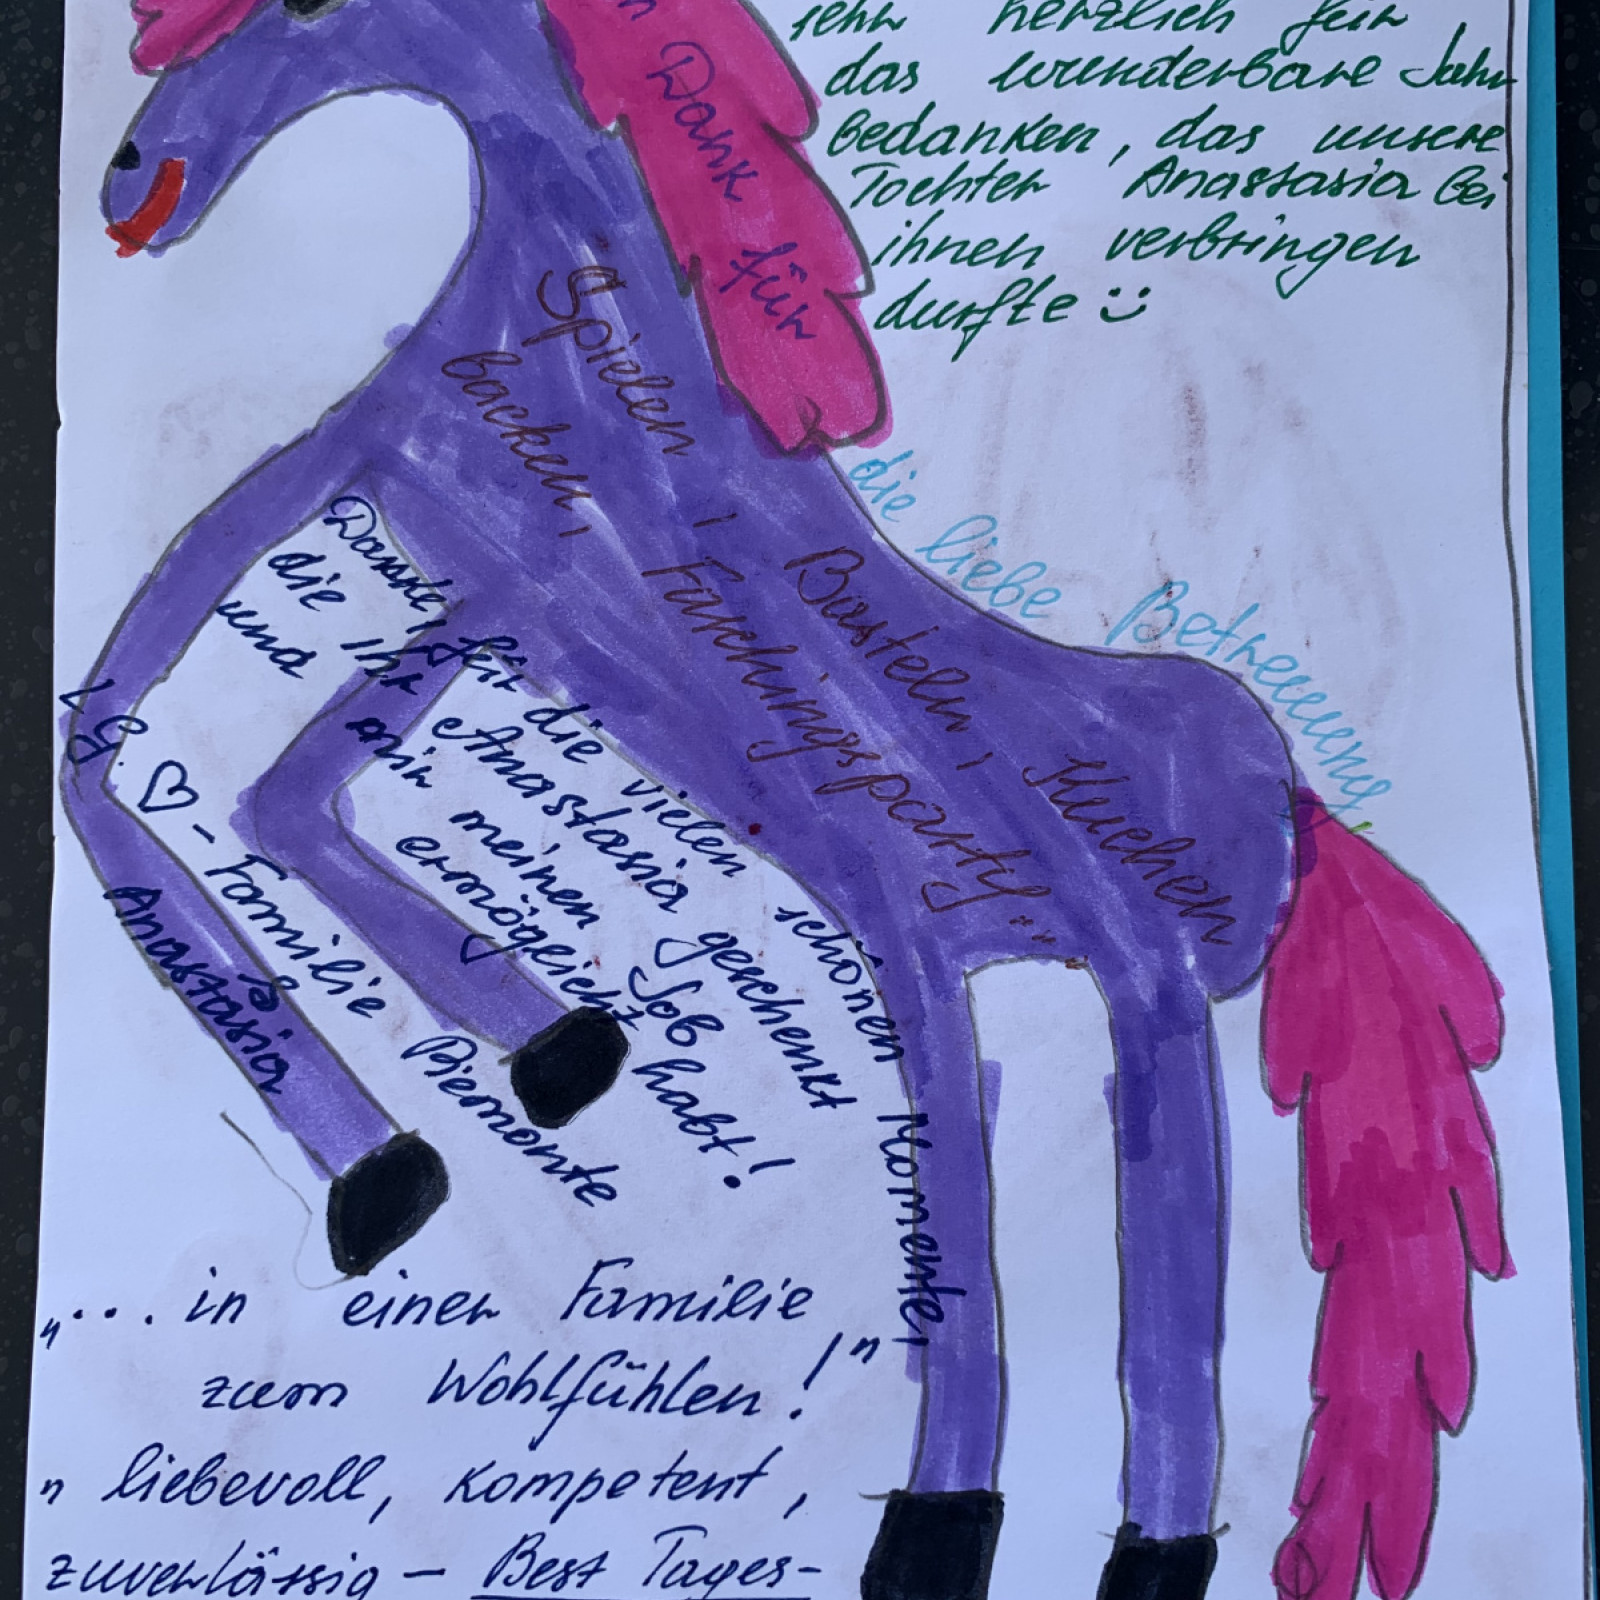 sehr herzlich für
das wunderbare Jahr
Bedanken, das unsere
Tochter Anastasia Bei
ihnen verbringen
durfte
Dank für
die liebe Betreuung
Spielen, Basteln, Kuchen
backen, Faschingsparty...
Danke, für die vielen schönen Momente,
die Ihr Anastasia geschenkt
und mir meinen Job
ermögeicht habt!
LG. ♡ - Familie Piemonte
& Anastasia
„... in einer Familie
zum Wohlfühlen!"
" liebevoll, kompetent,
zuverlässig - Best Tages-